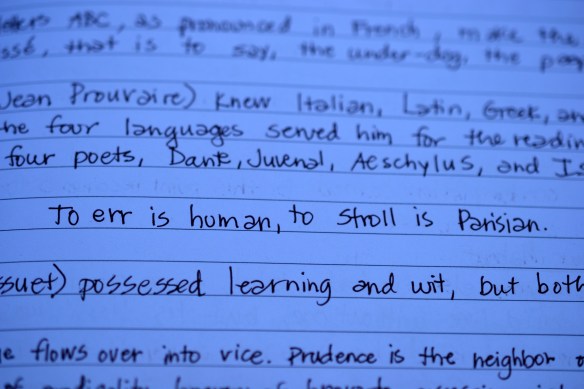 ABC, as pronounced in French, made the
that is to say, the under-dog, the
Jean Prouvaire) knew Italian, Latin, Greek,
the four languages served him for the
four poets, Dante, Juvenal, Aeschylus, and
To err is human, to stroll is Parisian.
possessed learning and wit, but both
flows over into vice. Prudence is the neighbor